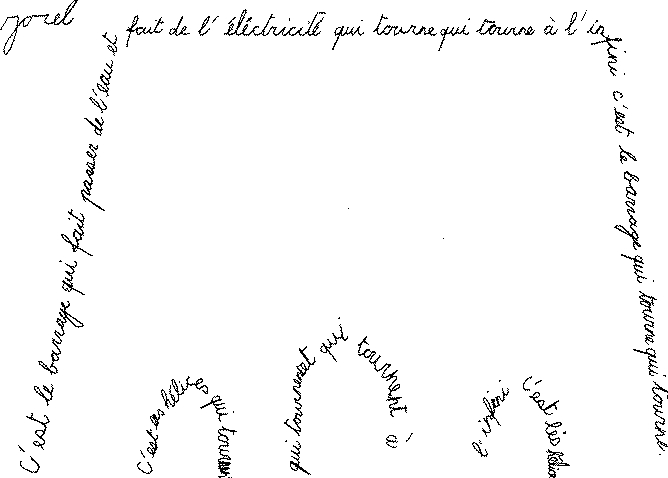 jorel
C'est le barrage qui fait passer de l'eau et
fait de l'éléctricité qui tourne qui tourne à l'in
fini c'est le barrage qui tourne qui tourne.
C'est les hélices qui tournent
qui tournent qui tournent à
l'infini c'est lés hélices